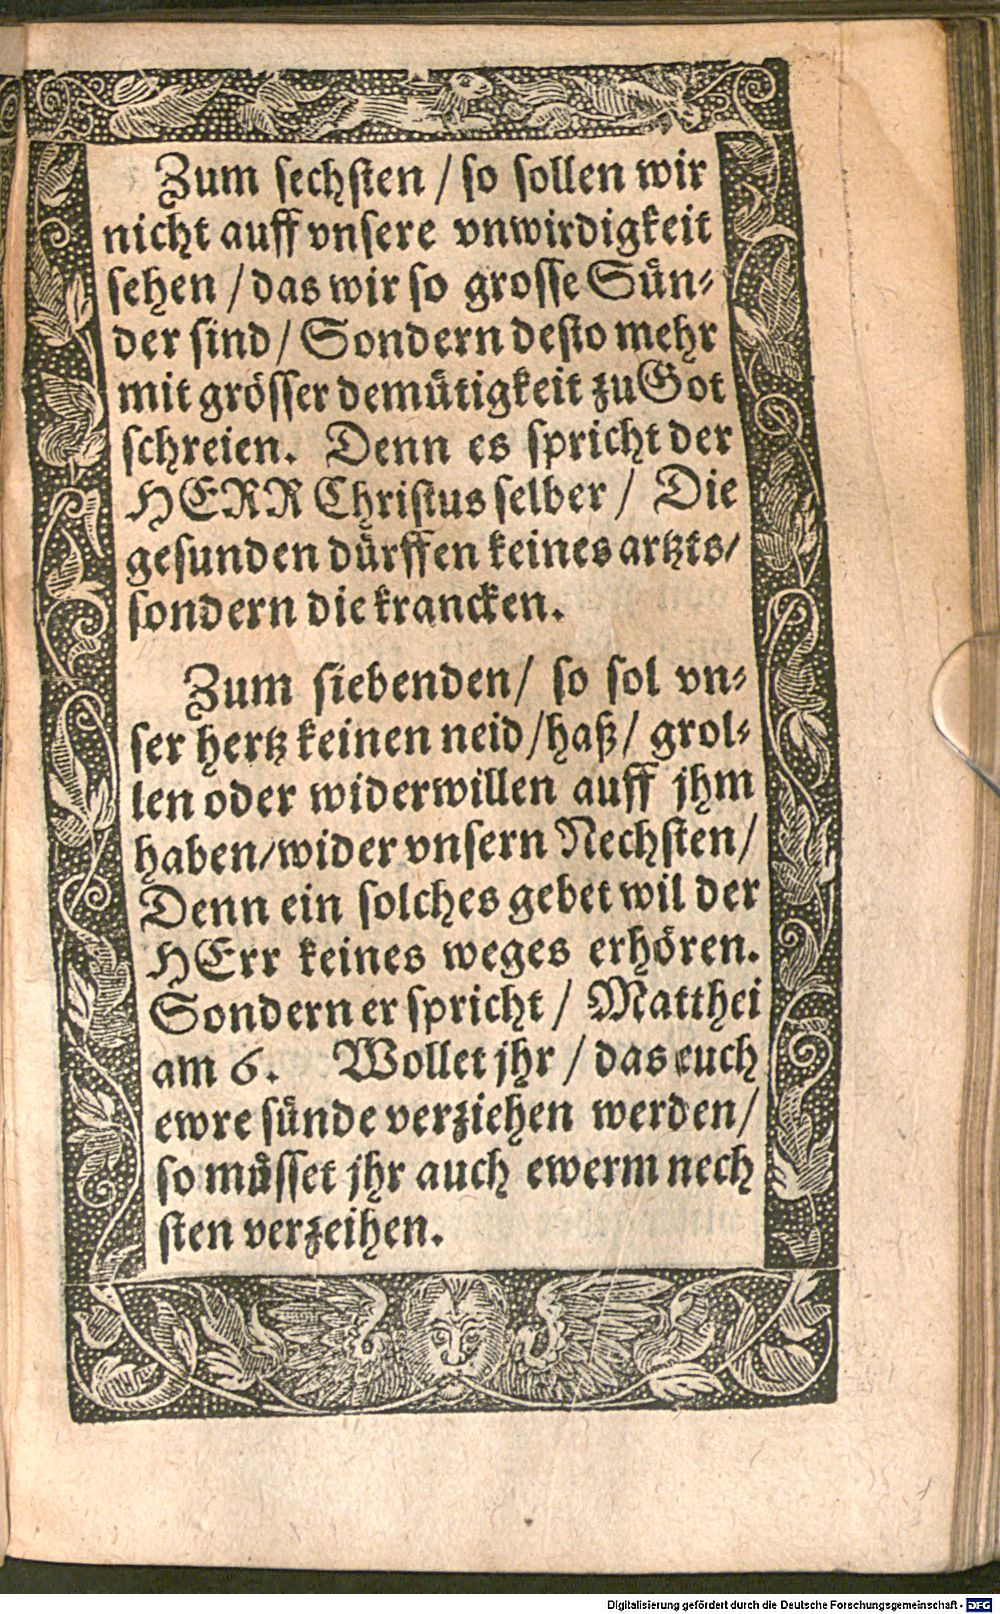 Zum sechsten / so sollen wir
nicht auff vnsere vnwirdigkeit
sehen / das wir so grosse Sün-
der sind / Sondern desto mehr
mit grösser demütigkeit zu Got
schreien. Denn es spricht der
HERR Christus selber / Die
gesunden dürffen keines artzts/
sondern die krancken.
Zum siebenden / so sol vn-
ser hertz keinen neid / haß / grol-
len oder widerwillen auff jhm
haben / wider vnsern Nechsten /
Denn ein solches gebet wil der
HErr keines weges erhören.
Sondern er spricht / Matthei
am 6. Wollet jhr / das euch
ewre sünde verziehen werden /
so müsset jhr auch ewerm nech
sten verzeihen.
Digitalisierung gefördert durch die Deutsche Forschungsgemeinschaft - DFG